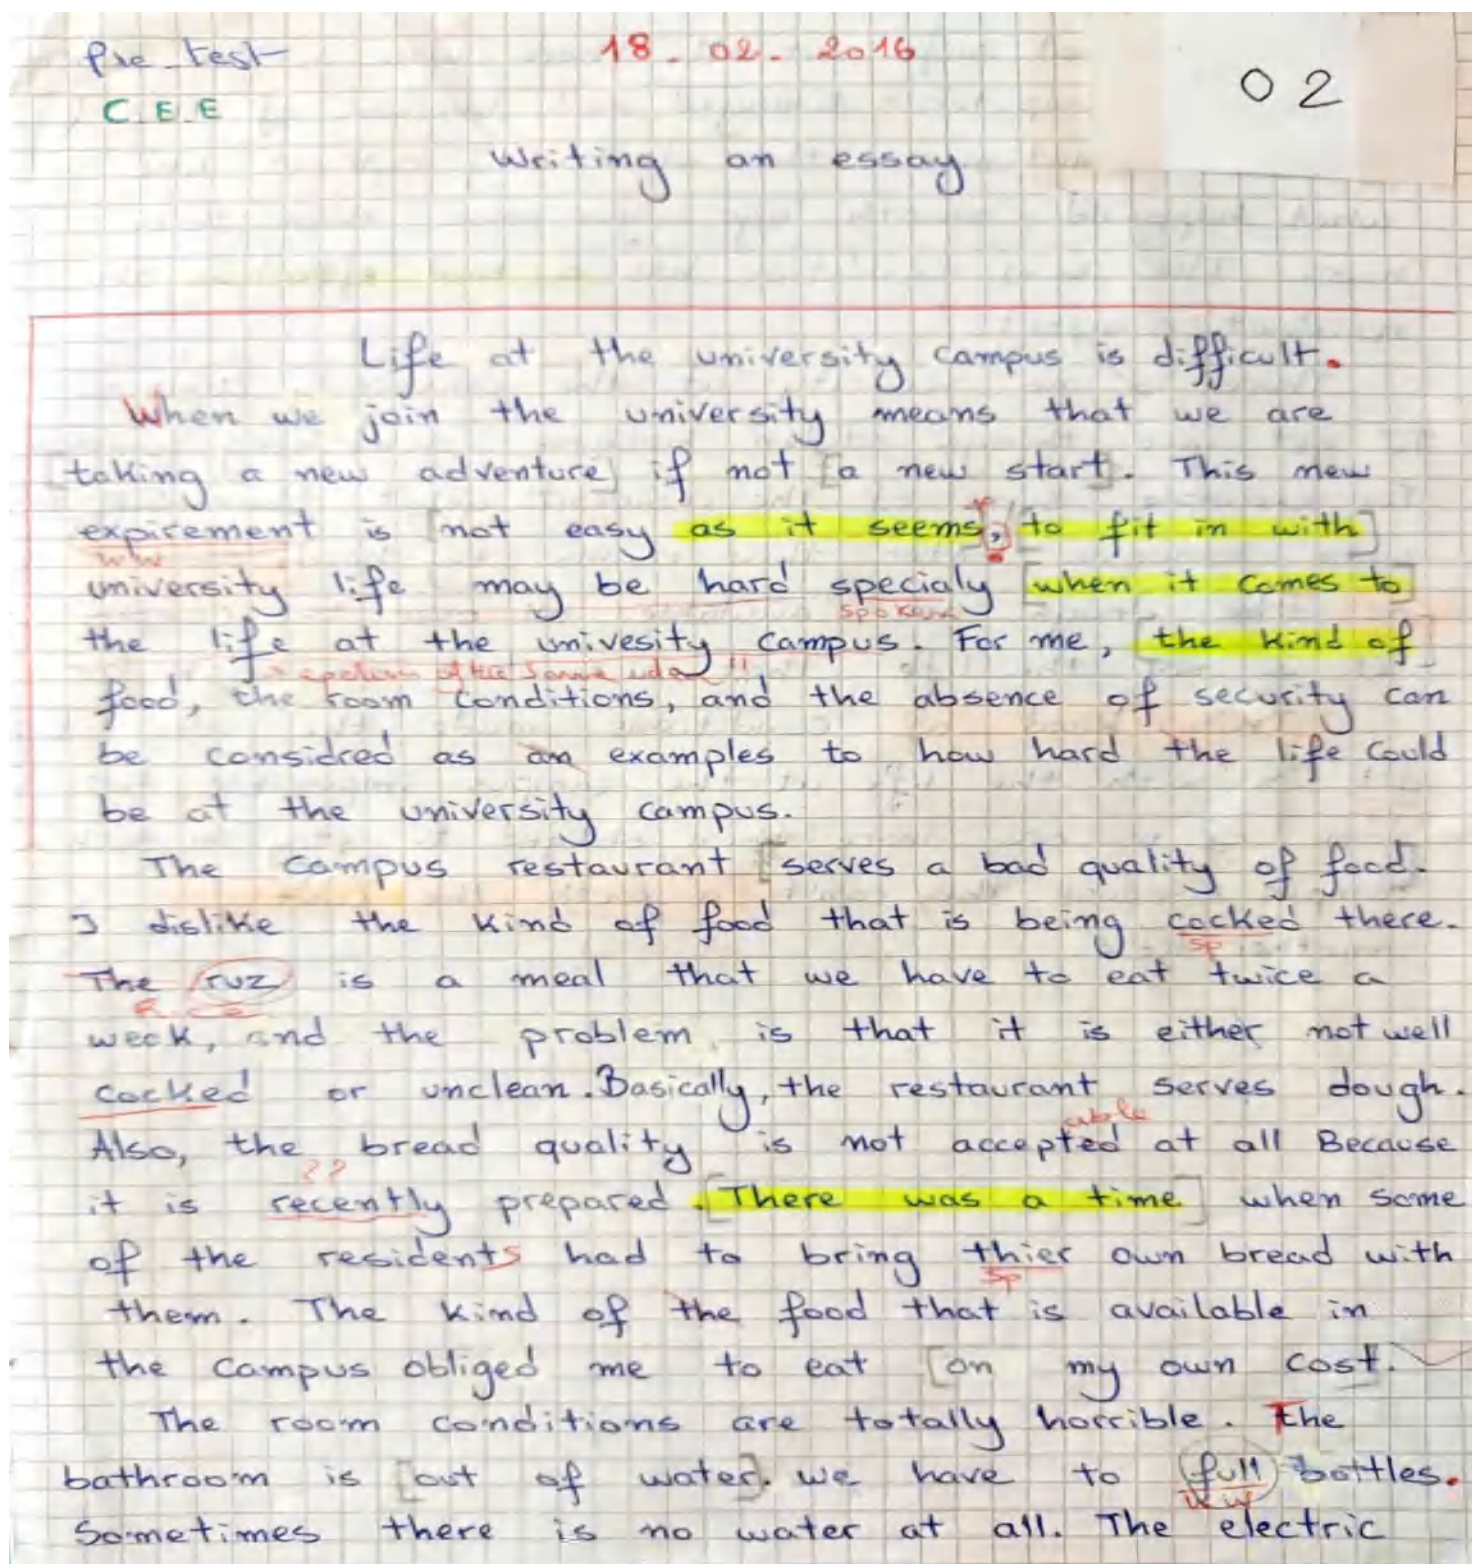 Pre_test
18-02-2016
02
C.E.E
Writing an essay
Life at the university campus is difficult.
When we join the university means that we are
[taking a new adventure] if not [a new start]. This new
expirement is [not easy as it seems, to fit in with]
ww
university life may be hard specialy [when it comes to]
spoken
the life at the univesity campus. For me, [the kind of]
of the same idea !!
food, the room conditions, and the absence of security can
be considred as an examples to how hard the life could
be at the university campus.
The campus restaurant [serves a bad quality of food.
I dislike the kind of food that is being cocked there.
sp
The ruz is a meal that we have to eat twice a
Rice
week, and the problem is that it is either not well
cocked or unclean. Basically, the restaurant serves dough.
able
Also, the bread quality is not accepted at all Because
??
it is recently prepared. [There was a time] when some
of the residents had to bring thier own bread with
sp
them. The kind of the food that is available in
the campus obliged me to eat [on my own cost].
The room conditions are totally horrible. The
bathroom is [out of water]. we have to full bottles.
ww
Sometimes there is no water at all. The electric